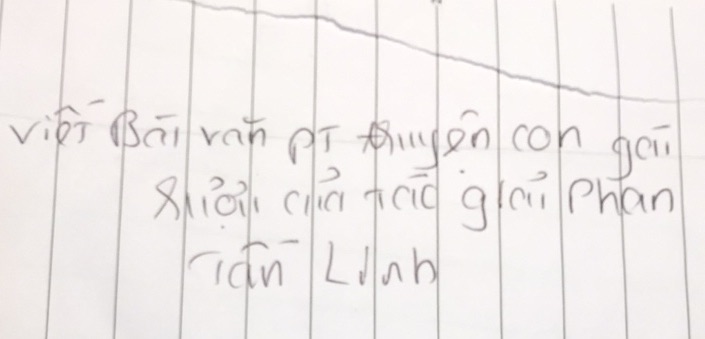 viết Bài văn pT truyện con gái
của tác giả Phan
Tấn Linh